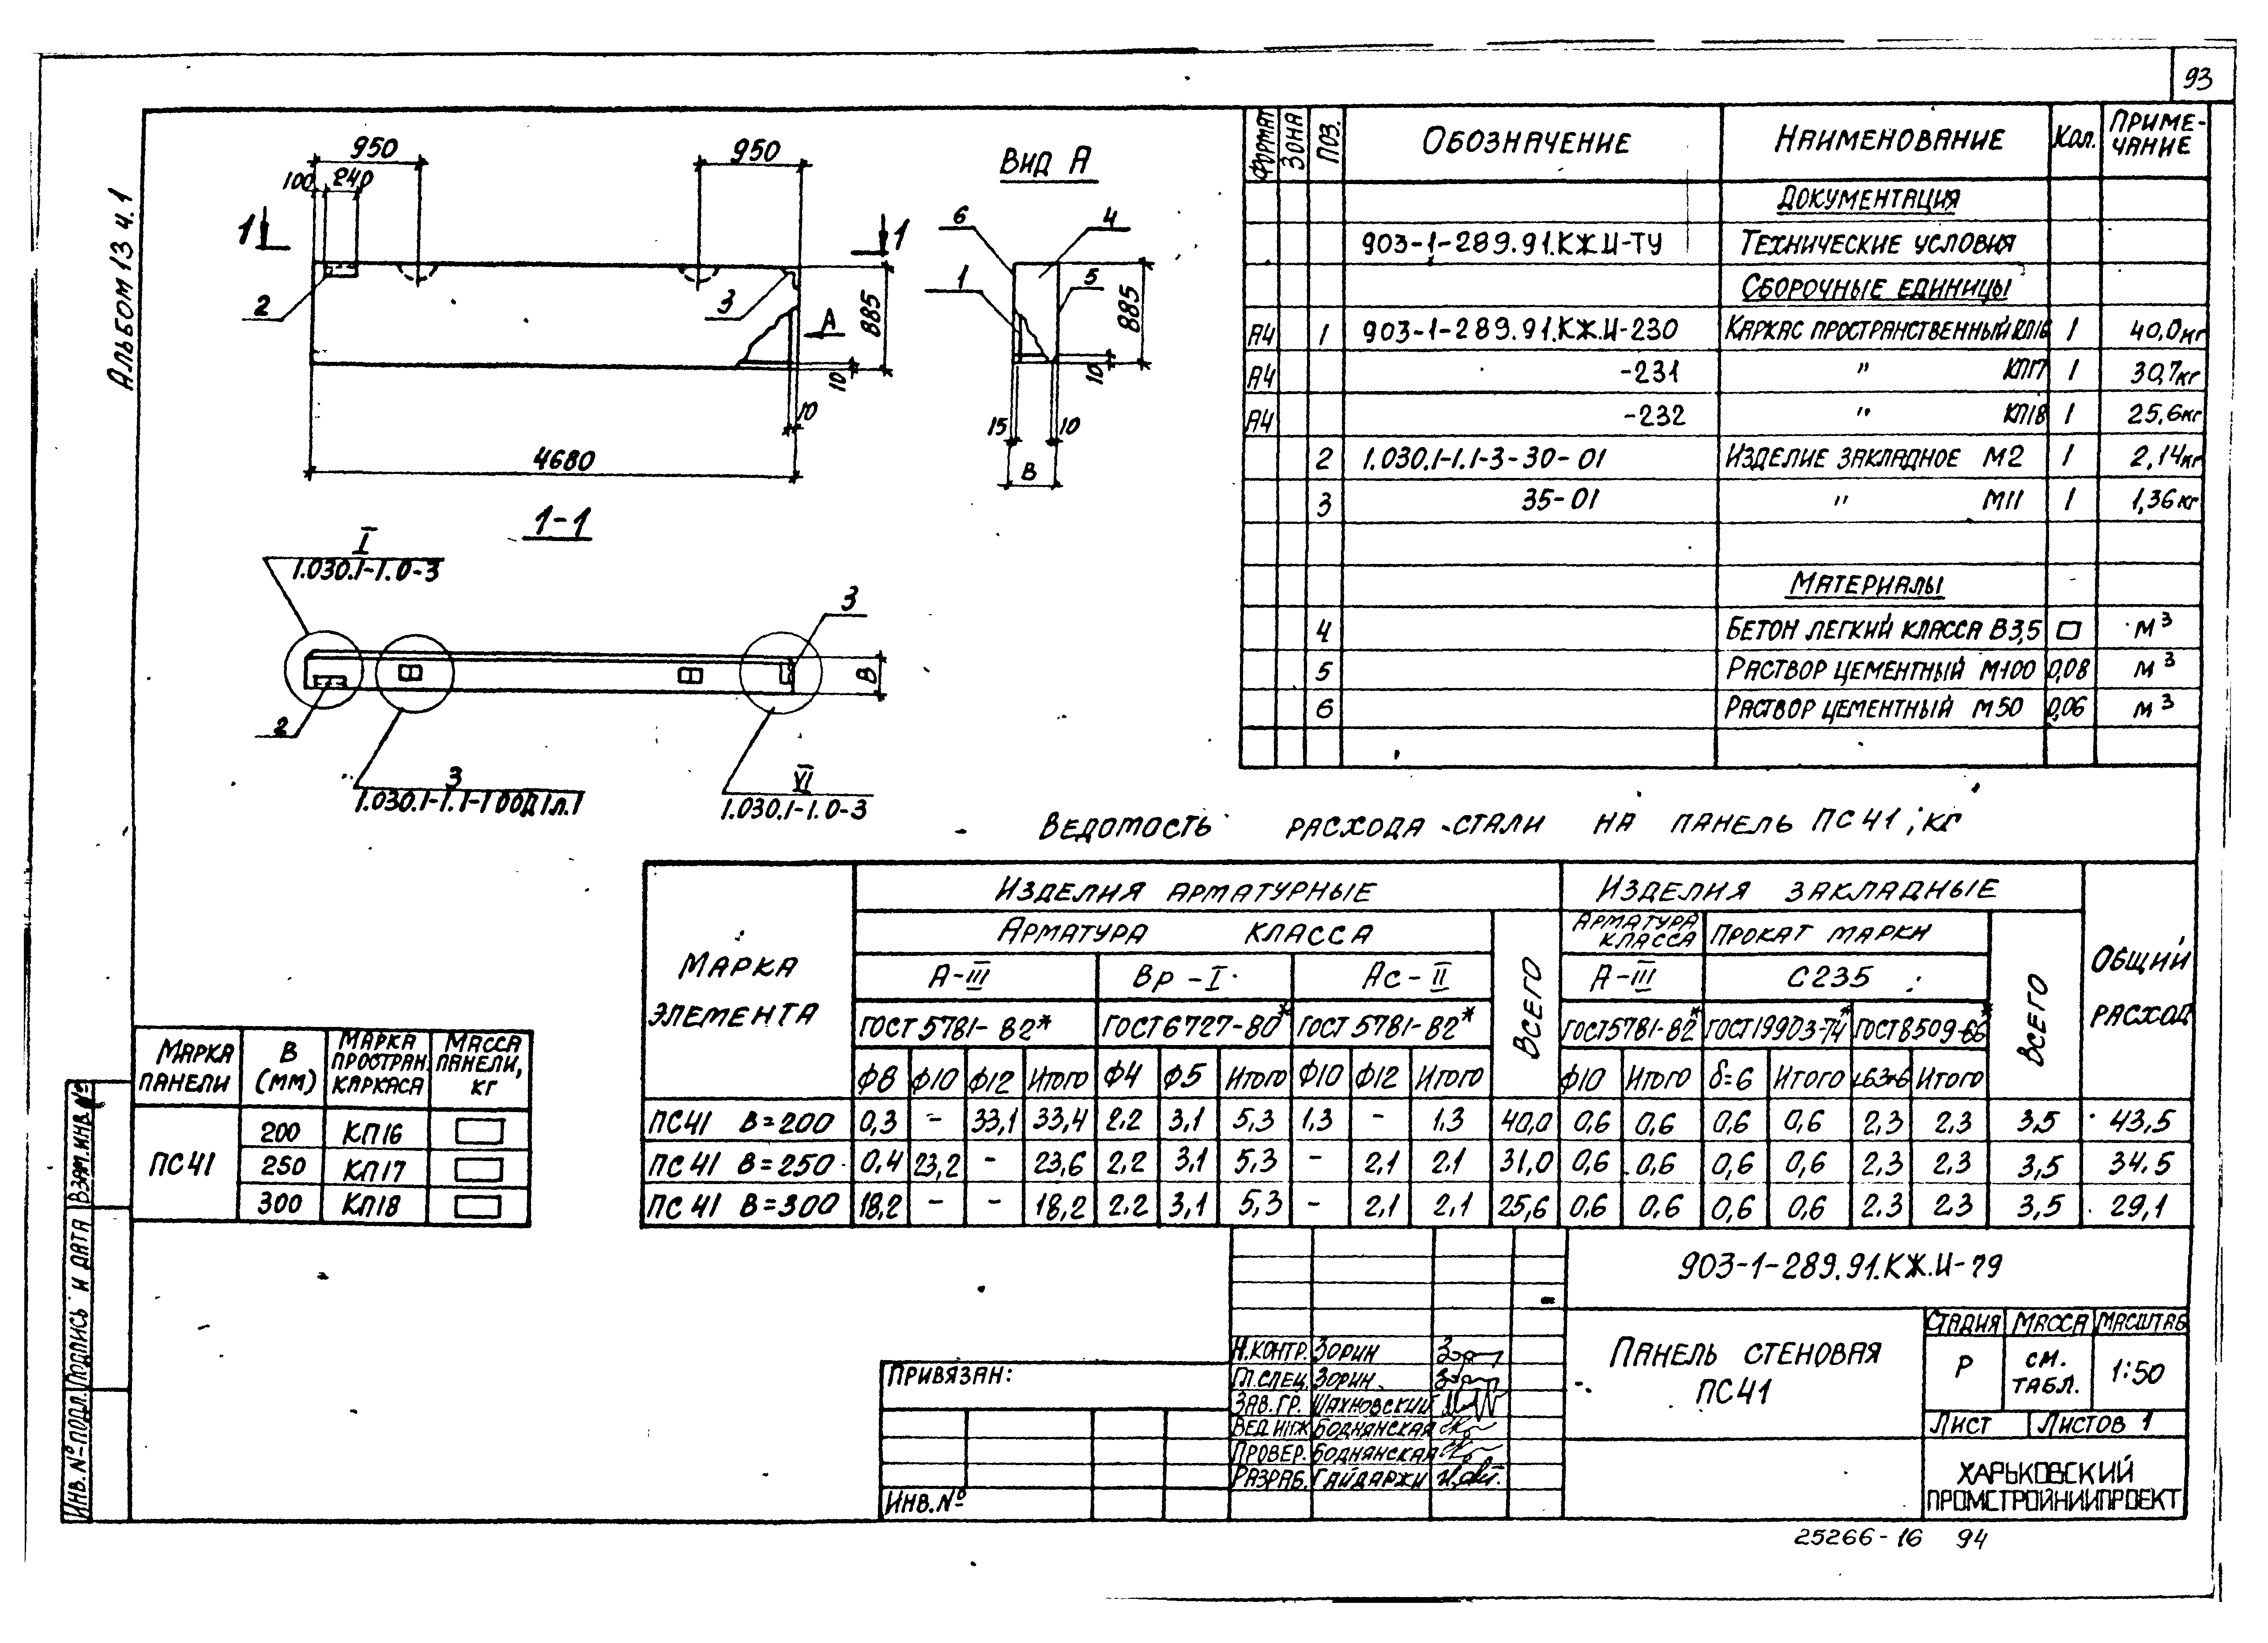 93
Альбом 13 ч.1
950
950
100
240
1
1
2
3
А
885
10
10
4680
Вид А
6
4
1
5
885
10
15
10
В
1-1
I
1.030.1-1.0-3
3
В
2
3
1.030.1-1.1-1 00Д1л.1
VI
1.030.1-1.0-3
Формат Зона Поз. Обозначение Наименование Кол. Приме-
чание
Документация
903-1-289.91.КЖ.И-ТУ Технические условия
Сборочные единицы
А4 1 903-1-289.91.КЖ.И-230 Каркас пространственный КП16 1 40,0кг
А4 -231 " КП17 1 30,7кг
А4 -232 " КП18 1 25,6кг
2 1.030.1-1.1-3-30-01 Изделие закладное М2 1 2,14кг
3 35-01 " М11 1 1,36кг
Материалы
4 Бетон легкий класса В3,5 □ м³
5 Раствор цементный М100 0,08 м³
6 Раствор цементный М50 0,06 м³
Ведомость расхода стали на панель ПС41, кг
Марка
элемента
Изделия арматурные
Изделия закладные
Общий
расход
Арматура класса
Всего
Арматура
класса
Прокат марки
Всего
А-III Вр-I Ас-II А-III С235
ГОСТ 5781-82* ГОСТ 6727-80* ГОСТ 5781-82* ГОСТ 5781-82* ГОСТ 19903-74* ГОСТ 8509-86*
Ф8 Ф10 Ф12 Итого Ф4 Ф5 Итого Ф10 Ф12 Итого Ф10 Итого δ=6 Итого L63×6 Итого
ПС41 В=200 0,3 - 33,1 33,4 2.2 3,1 5.3 1.3 - 1.3 40,0 0,6 0,6 0,6 0,6 2.3 2.3 3,5 43,5
ПС41 В=250 0,4 23,2 - 23,6 2.2 3,1 5.3 - 2,1 2.1 31,0 0,6 0,6 0,6 0,6 2.3 2.3 3,5 34.5
ПС41 В=300 18,2 - - 18,2 2.2 3,1 5,3 - 2,1 2.1 25,6 0,6 0,6 0,6 0,6 2.3 2.3 3,5 29,1
Марка
панели
В
(мм)
Марка
простран.
каркаса
Масса
панели,
кг
ПС41
200 КП16
250 КП17
300 КП18
Взам.инв.№
Подпись и дата
Инв.№ подл.
Привязан:
Инв.№
Н.контр. Зорин
Гл.спец. Зорин
Зав.гр. Шахновский
Вед.инж. Боднянская
Провер. Боднянская
Разраб. Гайдаржи
903-1-289.91.КЖ.И-79
Панель стеновая
ПС41
Стадия Масса Масштаб
Р см.
табл. 1:50
Лист Листов 1
Харьковский
Промстройниипроект
25266-16 94